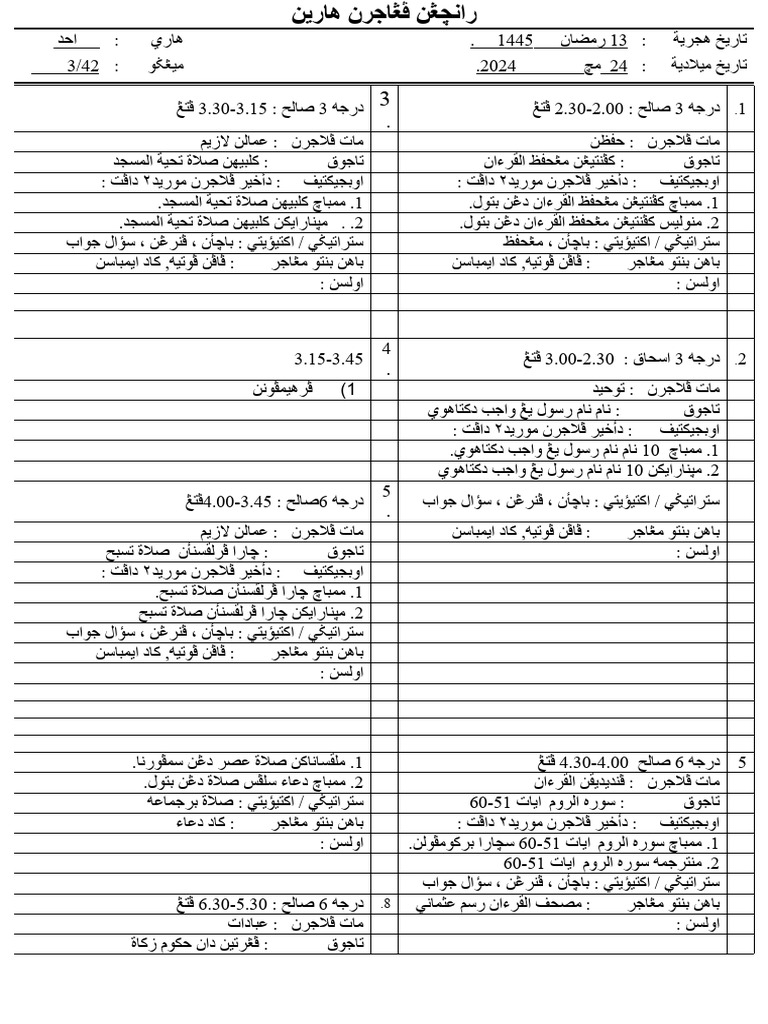 رانچڠن ڤڠاجرن هارين
تاريخ هجرية : 13 رمضان 1445 .
هاري : احد
تاريخ ميلادية : 24 مچ 2024.
ميڠݢو : 3/42
1. درجه 3 صالح : 2.00-2.30 ڤتڠ
مات ڤلاجرن : حفظن
تاجوق : كڤنتيڠن مڠحفظ القرءان
اوبجيكتيف : دأخير ڤلاجرن موريد٢ داڤت :
1. ممباچ كڤنتيڠن مڠحفظ القرءان دڠن بتول.
2. منوليس كڤنتيڠن مڠحفظ القرءان دڠن بتول.
ستراتيݢي / اكتيؤيتي : باچأن ، مڠحفظ
باهن بنتو مڠاجر : ڤاڤن ڤوتيه, كاد ايمباسن
اولسن :
2. درجه 3 اسحاق : 2.30-3.00 ڤتڠ
مات ڤلاجرن : توحيد
تاجوق : نام نام رسول يڠ واجب دكتاهوي
اوبجيكتيف : دأخير ڤلاجرن موريد٢ داڤت :
1. ممباچ 10 نام نام رسول يڠ واجب دكتاهوي.
2. مڽنارايكن 10 نام نام رسول يڠ واجب دكتاهوي
ستراتيݢي / اكتيؤيتي : باچأن ، ڤنرڠن ، سؤال جواب
باهن بنتو مڠاجر : ڤاڤن ڤوتيه, كاد ايمباسن
اولسن :
5 درجه 6 صالح 4.00-4.30 ڤتڠ
مات ڤلاجرن : ڤنديديقن القرءان
تاجوق : سوره الروم ايات 51-60
اوبجيكتيف : دأخير ڤلاجرن موريد٢ داڤت :
1. ممباچ سوره الروم ايات 51-60 سچارا بركومڤولن.
2. منترجمه سوره الروم ايات 51-60
ستراتيݢي / اكتيؤيتي : باچأن ، ڤنرڠن ، سؤال جواب
باهن بنتو مڠاجر : مصحف القرءان رسم عثماني
اولسن :
3. درجه 3 صالح : 3.15-3.30 ڤتڠ
مات ڤلاجرن : عمالن لازيم
تاجوق : كلبيهن صلاة تحية المسجد
اوبجيكتيف : دأخير ڤلاجرن موريد٢ داڤت :
1. ممباچ كلبيهن صلاة تحية المسجد.
2. . مڽنارايكن كلبيهن صلاة تحية المسجد.
ستراتيݢي / اكتيؤيتي : باچأن ، ڤنرڠن ، سؤال جواب
باهن بنتو مڠاجر : ڤاڤن ڤوتيه, كاد ايمباسن
اولسن :
4. 3.15-3.45
1) ڤرهيمڤونن
5. درجه 6صالح : 3.45-4.00ڤتڠ
مات ڤلاجرن : عمالن لازيم
تاجوق : چارا ڤرلقسنأن صلاة تسبح
اوبجيكتيف : دأخير ڤلاجرن موريد٢ داڤت :
1. ممباچ چارا ڤرلقسنأن صلاة تسبح.
2. مڽنارايكن چارا ڤرلقسنأن صلاة تسبح
ستراتيݢي / اكتيؤيتي : باچأن ، ڤنرڠن ، سؤال جواب
باهن بنتو مڠاجر : ڤاڤن ڤوتيه, كاد ايمباسن
اولسن :
1. ملقساناكن صلاة عصر دڠن سمڤورنا.
2. ممباچ دعاء سلڤس صلاة دڠن بتول.
ستراتيݢي / اكتيؤيتي : صلاة برجماعه
باهن بنتو مڠاجر : كاد دعاء
اولسن :
8. درجه 6 صالح : 5.30-6.30 ڤتڠ
مات ڤلاجرن : عبادات
تاجوق : ڤڠرتين دان حكوم زكاة